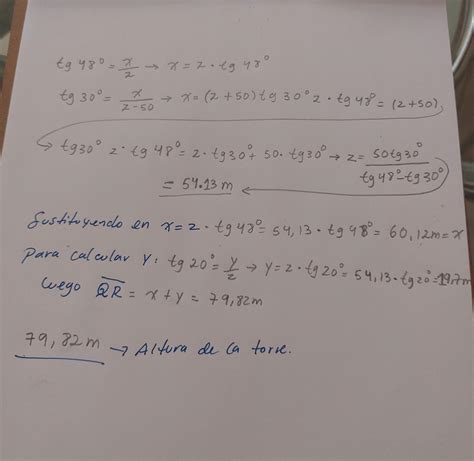 tg 48° = x/z → x = z · tg 48°
tg 30° = x/z-50 → x = (z+50) tg 30° z · tg 48° = (z+50)
→ tg30° z · tg 48° = z · tg30° + 50 · tg30° → z = 50tg30°/tg48°-tg30°
= 54.13 m
Sustituyendo en x = z · tg 48° = 54,13 · tg 48° = 60,12m = x
Para calcular y: tg 20° = y/z → y = z · tg 20° = 54,13 · tg 20° = 19.7m
Luego QR = x + y = 79,82m
79,82m → Altura de la torre.